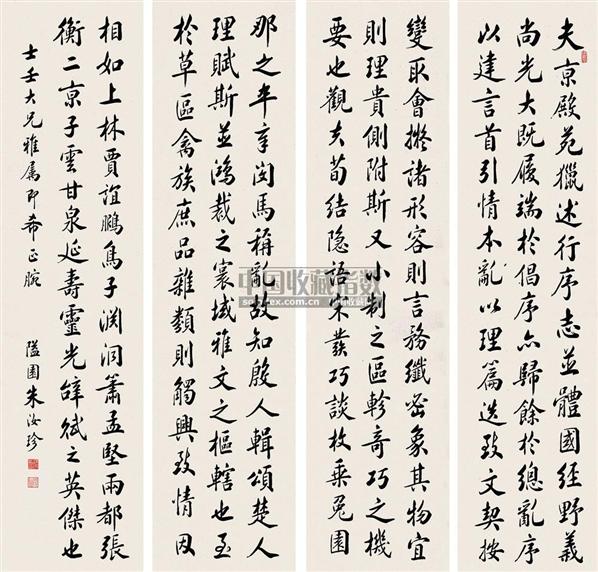 夫京殿苑獵述行序志並體國經野義
尚光大既履端於倡序亦歸餘於總亂序
以建言首引情本亂以理篇迭致文契按
變取會擬諸形容則言務纖密象其物宜
則理貴側附斯又小制之區軫奇巧之機
要也觀夫荀結隱語宋發巧談枚乘兔園
那之卒章閔馬稱亂故知殷人輯頌楚人
理賦斯並鴻裁之寰域雅文之樞轄也至
於草區禽族庶品雜類則觸興致情因
相如上林賈誼鵩鳥子淵洞簫孟堅兩都張
衡二京子雲甘泉延壽靈光辭賦之英傑也
士壬大兄雅屬即希正腕 隘園朱汝珍
中国收藏指数